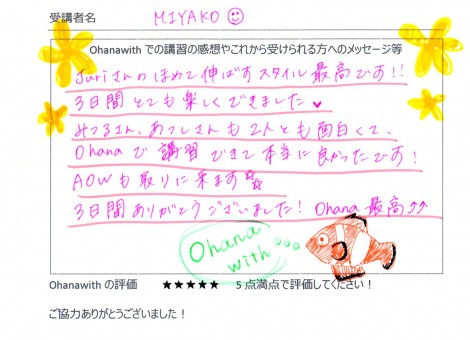 受講者名 MIYAKO
Ohanawith での講習の感想やこれから受けられる方へのメッセージ等
Juriさんのほめて伸ばすスタイル最高です!!
3日間とても楽しくできました♥
みつるさん、あつしさんも2人とも面白くて、
Ohanaで講習できて本当に良かったです!
AOWも取りに来ます☆☆
3日間ありがとうございました! Ohana最高⤴⤴
Ohana
with
Ohanawith の評価 ★★★★★ 5点満点で評価してください!
ご協力ありがとうございました!